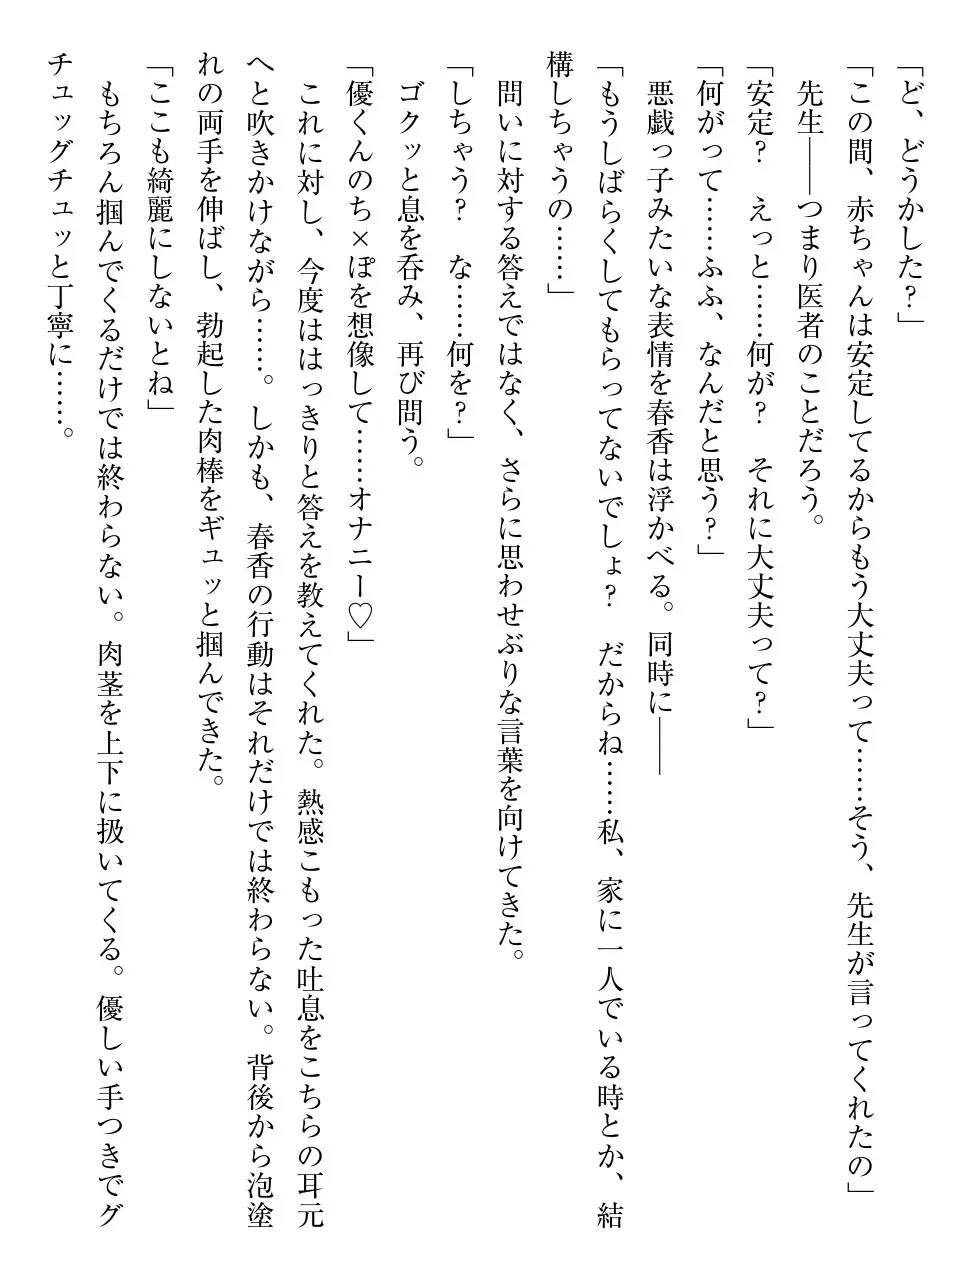 「ど、どうかした？」
「この間、赤ちゃんは安定してるからもう大丈夫って……そう、先生が言ってくれたの」
　先生――つまり医者のことだろう。
「安定？　えっと……何が？　それに大丈夫って？」
「何がって……ふふ、なんだと思う？」
　悪戯っ子みたいな表情を春香は浮かべる。同時に――
「もうしばらくしてもらってないでしょ？　だからね……私、家に一人でいる時とか、結
構しちゃうの……」
　問いに対する答えではなく、さらに思わせぶりな言葉を向けてきた。
「しちゃう？　な……何を？」
　ゴクッと息を呑み、再び問う。
「優くんのち×ぽを想像して……オナニー♡」
　これに対し、今度ははっきりと答えを教えてくれた。熱感こもった吐息をこちらの耳元
へと吹きかけながら……。しかも、春香の行動はそれだけでは終わらない。背後から泡塗
れの両手を伸ばし、勃起した肉棒をギュッと掴んできた。
「ここも綺麗にしないとね」
　もちろん掴んでくるだけでは終わらない。肉茎を上下に扱いてくる。優しい手つきでグ
チュッグチュッと丁寧に……。